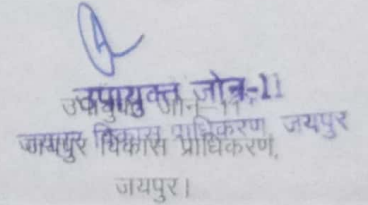 उपायुक्त जोन-11
जयपुर विकास प्राधिकरण, जयपुर
उपायुक्त जोन-11,
जयपुर विकास प्राधिकरण,
जयपुर।